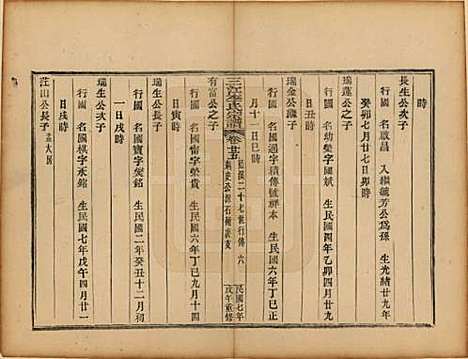 時
長生公次子
行國 名啟昌 入繼毓芳公爲孫 生光緒廿九年
癸卯七月廿七日卯時
瑞蓮公之子
行國 名幼斐字廷獻 生民國四年乙卯四月廿九
瑞金公濂子
行國 名國通字積傳號祥本 生民國六年丁巳正
月十一日巳時
有富公之子
三江李氏宗譜
卷廿五
藍派二十七世行傳 六
刺史公派石州房支
民國七年
戊午重修
行國 名國鈞字榮貴 生民國六年丁巳九月十四
日寅時
瑞生公次子
行國 名國寶字燮銘 生民國二年癸丑十二月初
一日戌時
瑞生公三子
行國 名國棋字永銘 生民國七年戊午四月廿一
日戌時
茳山公長子
大房